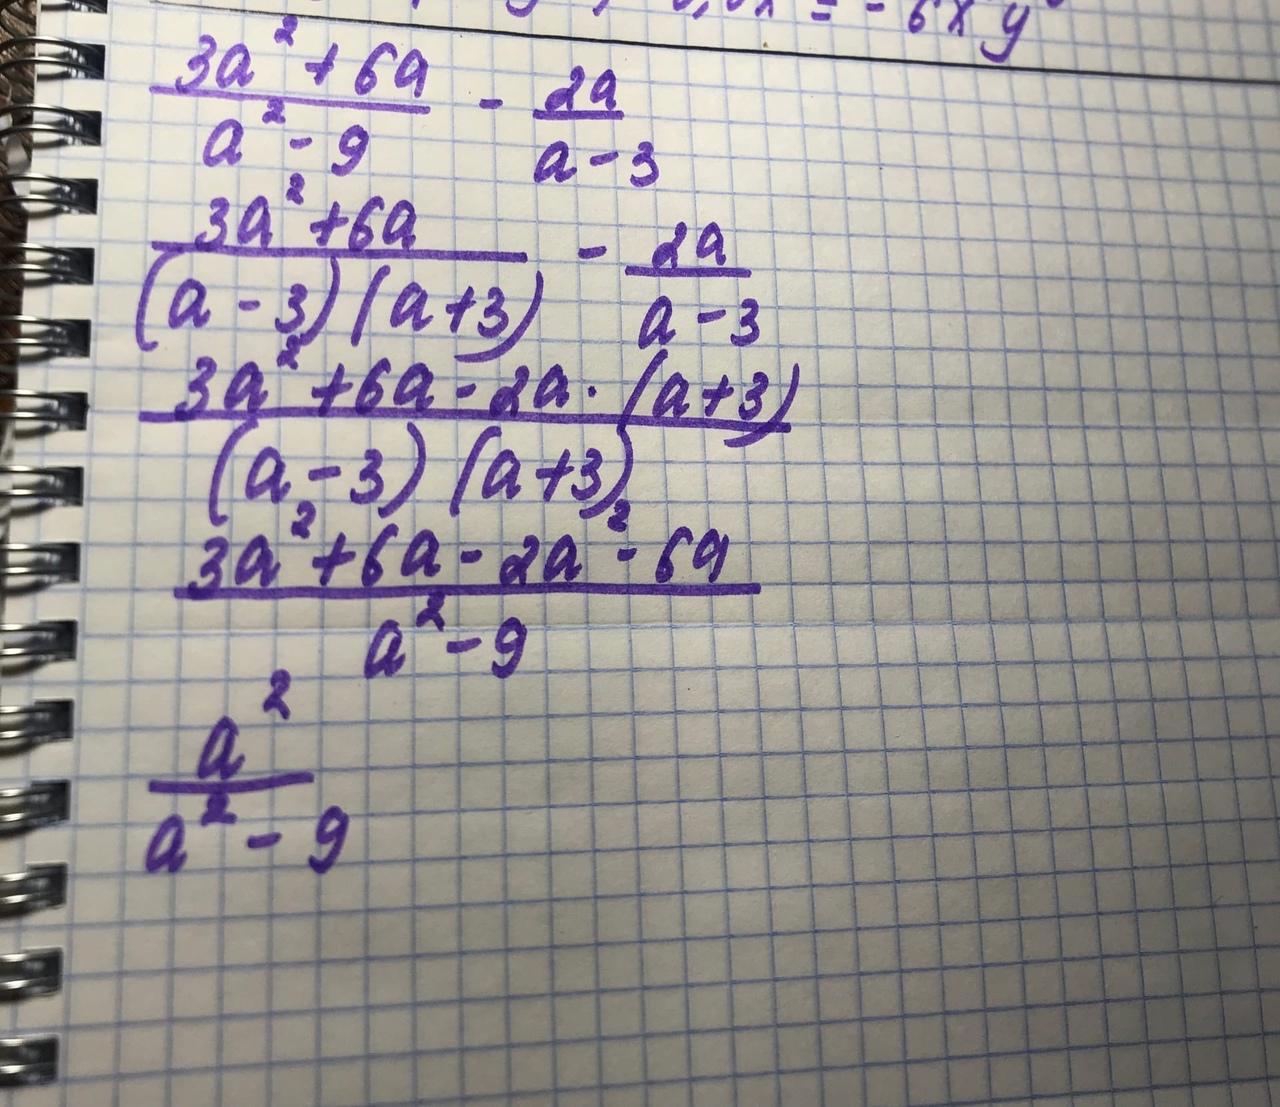 = - 6x y
3a² + 6a / a² - 9 - 2a / a - 3
3a² + 6a / (a - 3) (a + 3) - 2a / a - 3
3a² + 6a - 2a · (a + 3) / (a - 3) (a + 3)
3a² + 6a - 2a² - 6a / a² - 9
a² / a² - 9